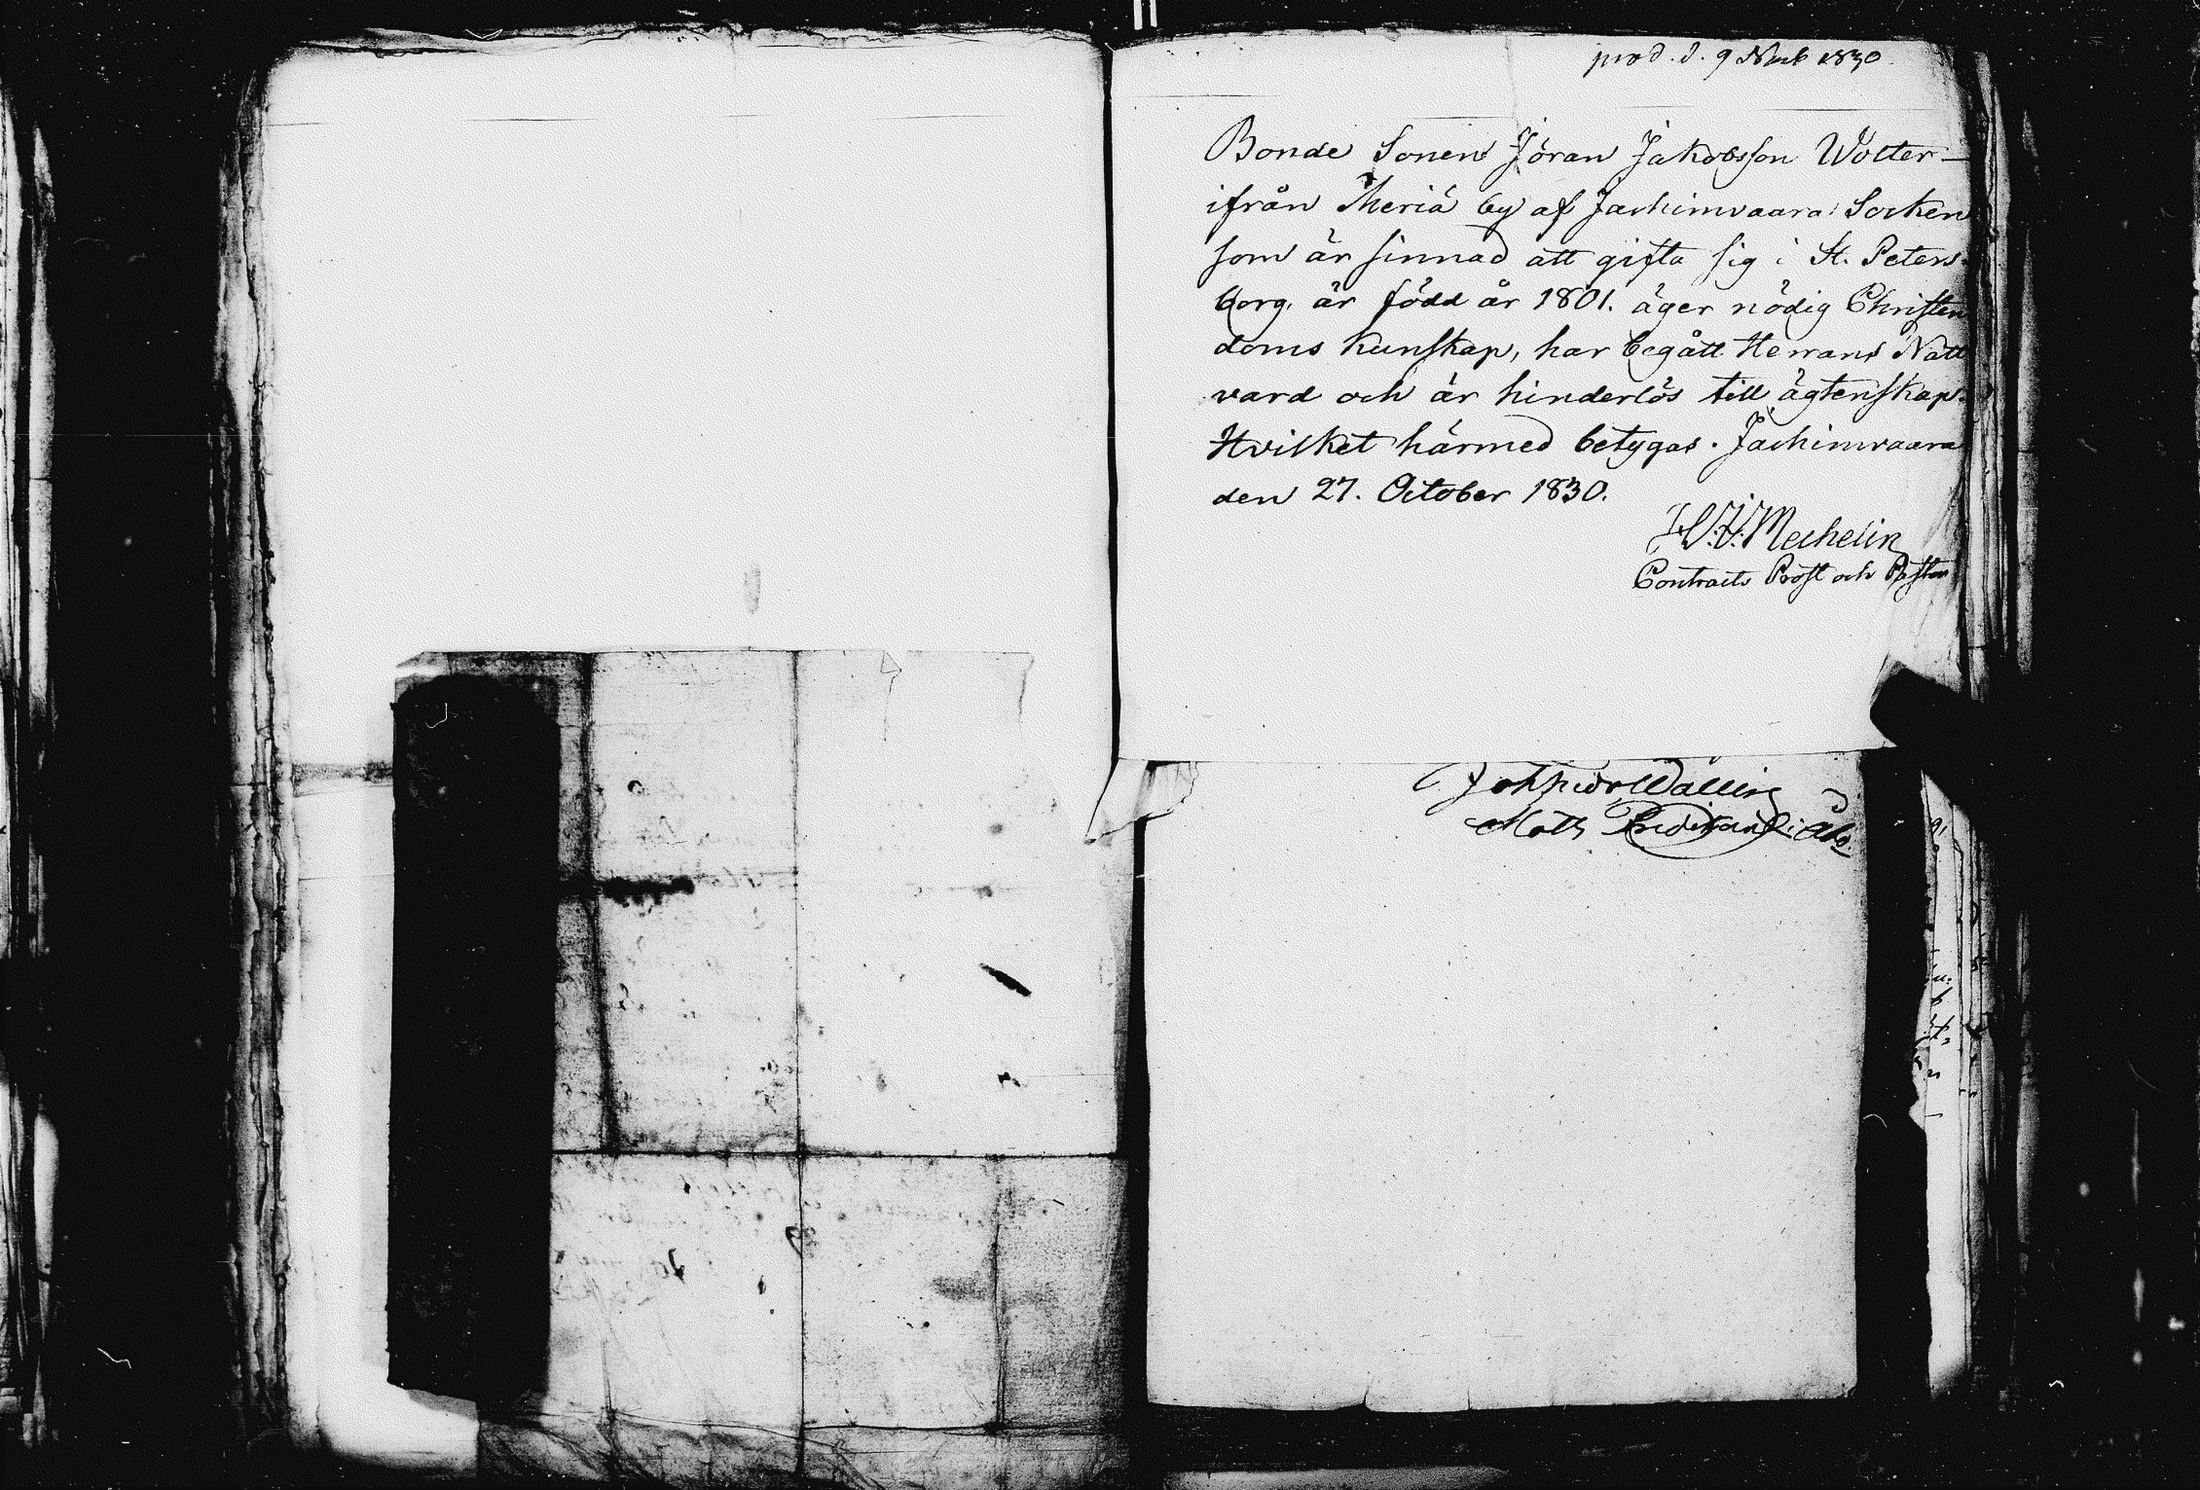 prod. d. 9 Novb 1830
Bonde Sonen Jöran Jakobsson Wotter
ifrån Meriä by af Jachimvaara Socken
som är sinnad att gifta sig i St. Peters-
borg, är född år 1801. äger nödig Christen
doms kunskap, har begått Herrans Natt
vard och är hinderlös till ägtenskap.
Hvilket härmed betygas. Jachimvaara
den 27. October 1830.
Mechelin
Contracts Prost och Pastor
Wallin
Math. i Åbo.